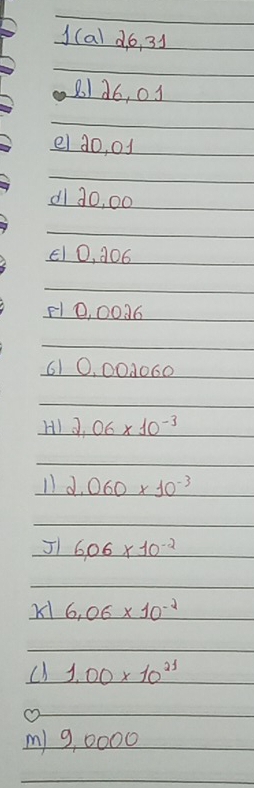 1(a) 26,31
b) 26,01
c) 20,01
d) 20,00
E) 0,206
F) 0,0026
G) 0,002060
H) 2,06 x 10⁻³
I) 2,060 x 10⁻³
J) 6,06 x 10⁻²
K) 6,06 x 10⁻²
L) 1,00 x 10²¹
m) 9,0000